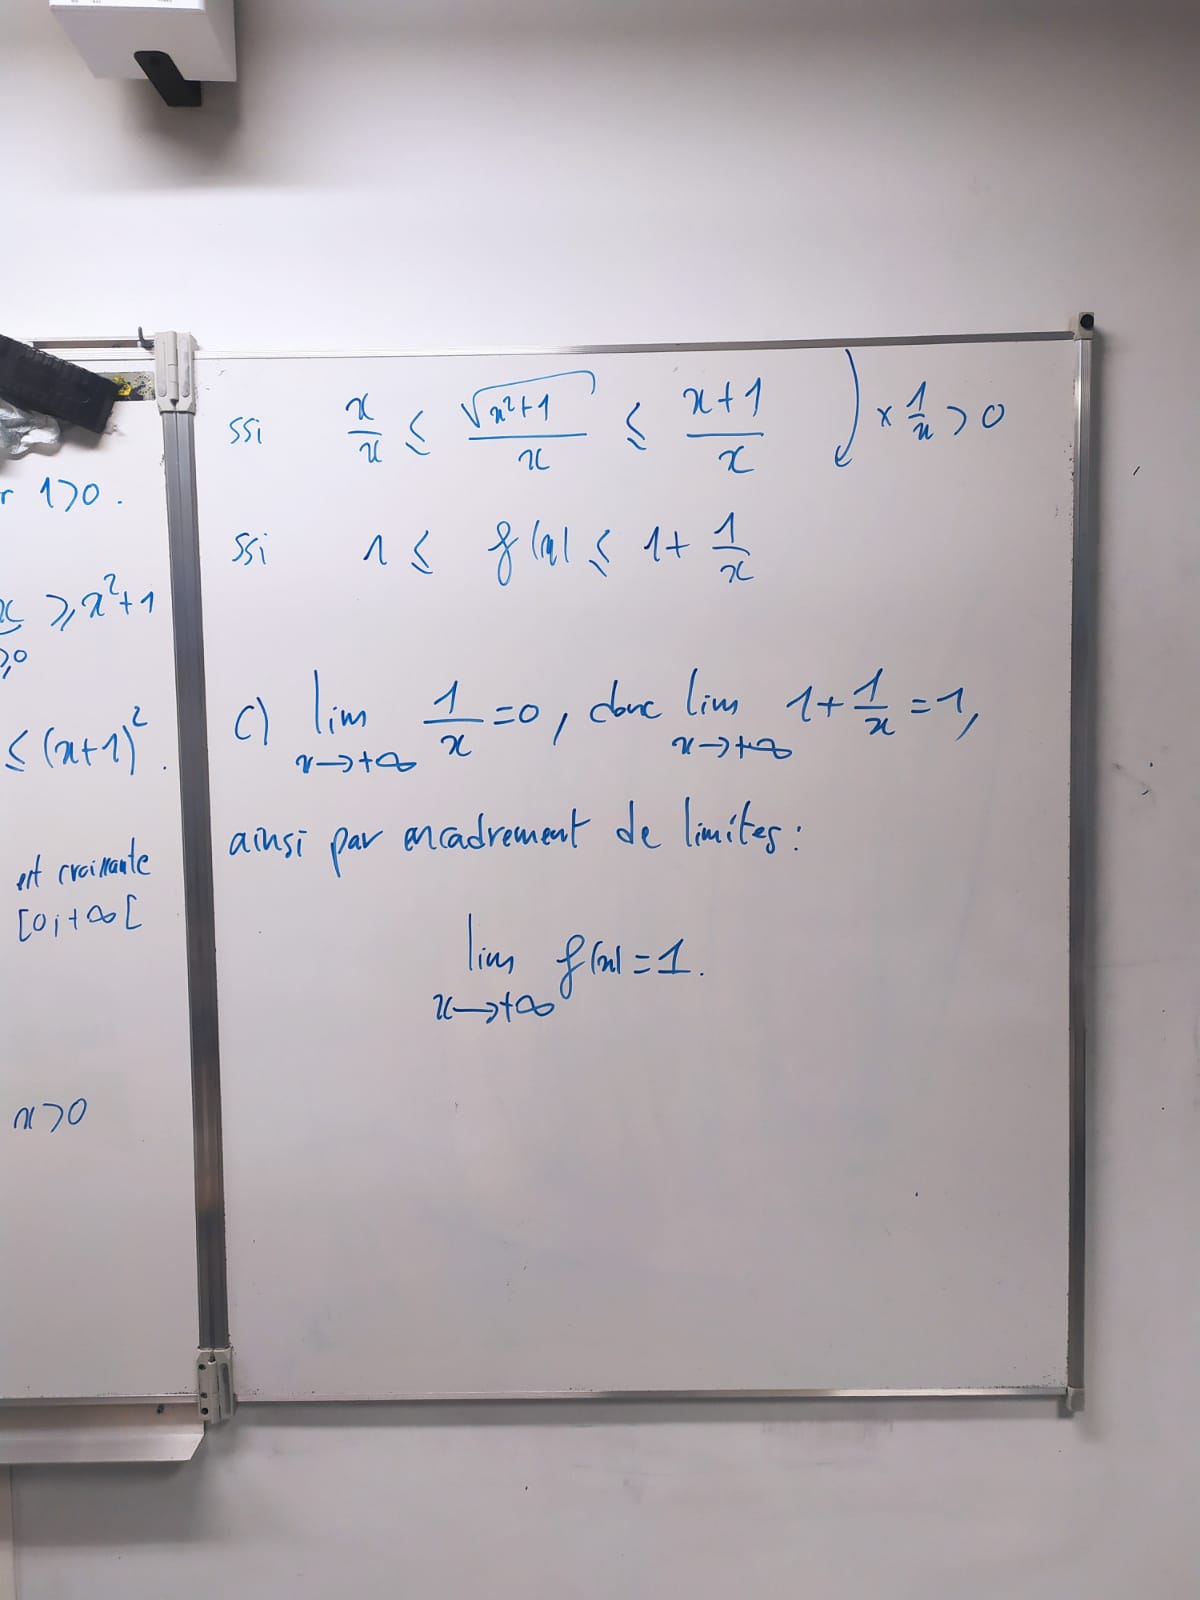 r 1>0.
x ⩾ x²+1
⩾0
≤ (x+1)².
est croissante
[0;+∞[
x>0
ssi x/x ≤ √(x²+1)/x ≤ (x+1)/x × 1/x >0
ssi 1 ≤ f(x) ≤ 1 + 1/x
c) lim x→+∞ 1/x = 0, donc lim x→+∞ 1 + 1/x = 1,
ainsi par encadrement de limites :
lim x→+∞ f(x) = 1.